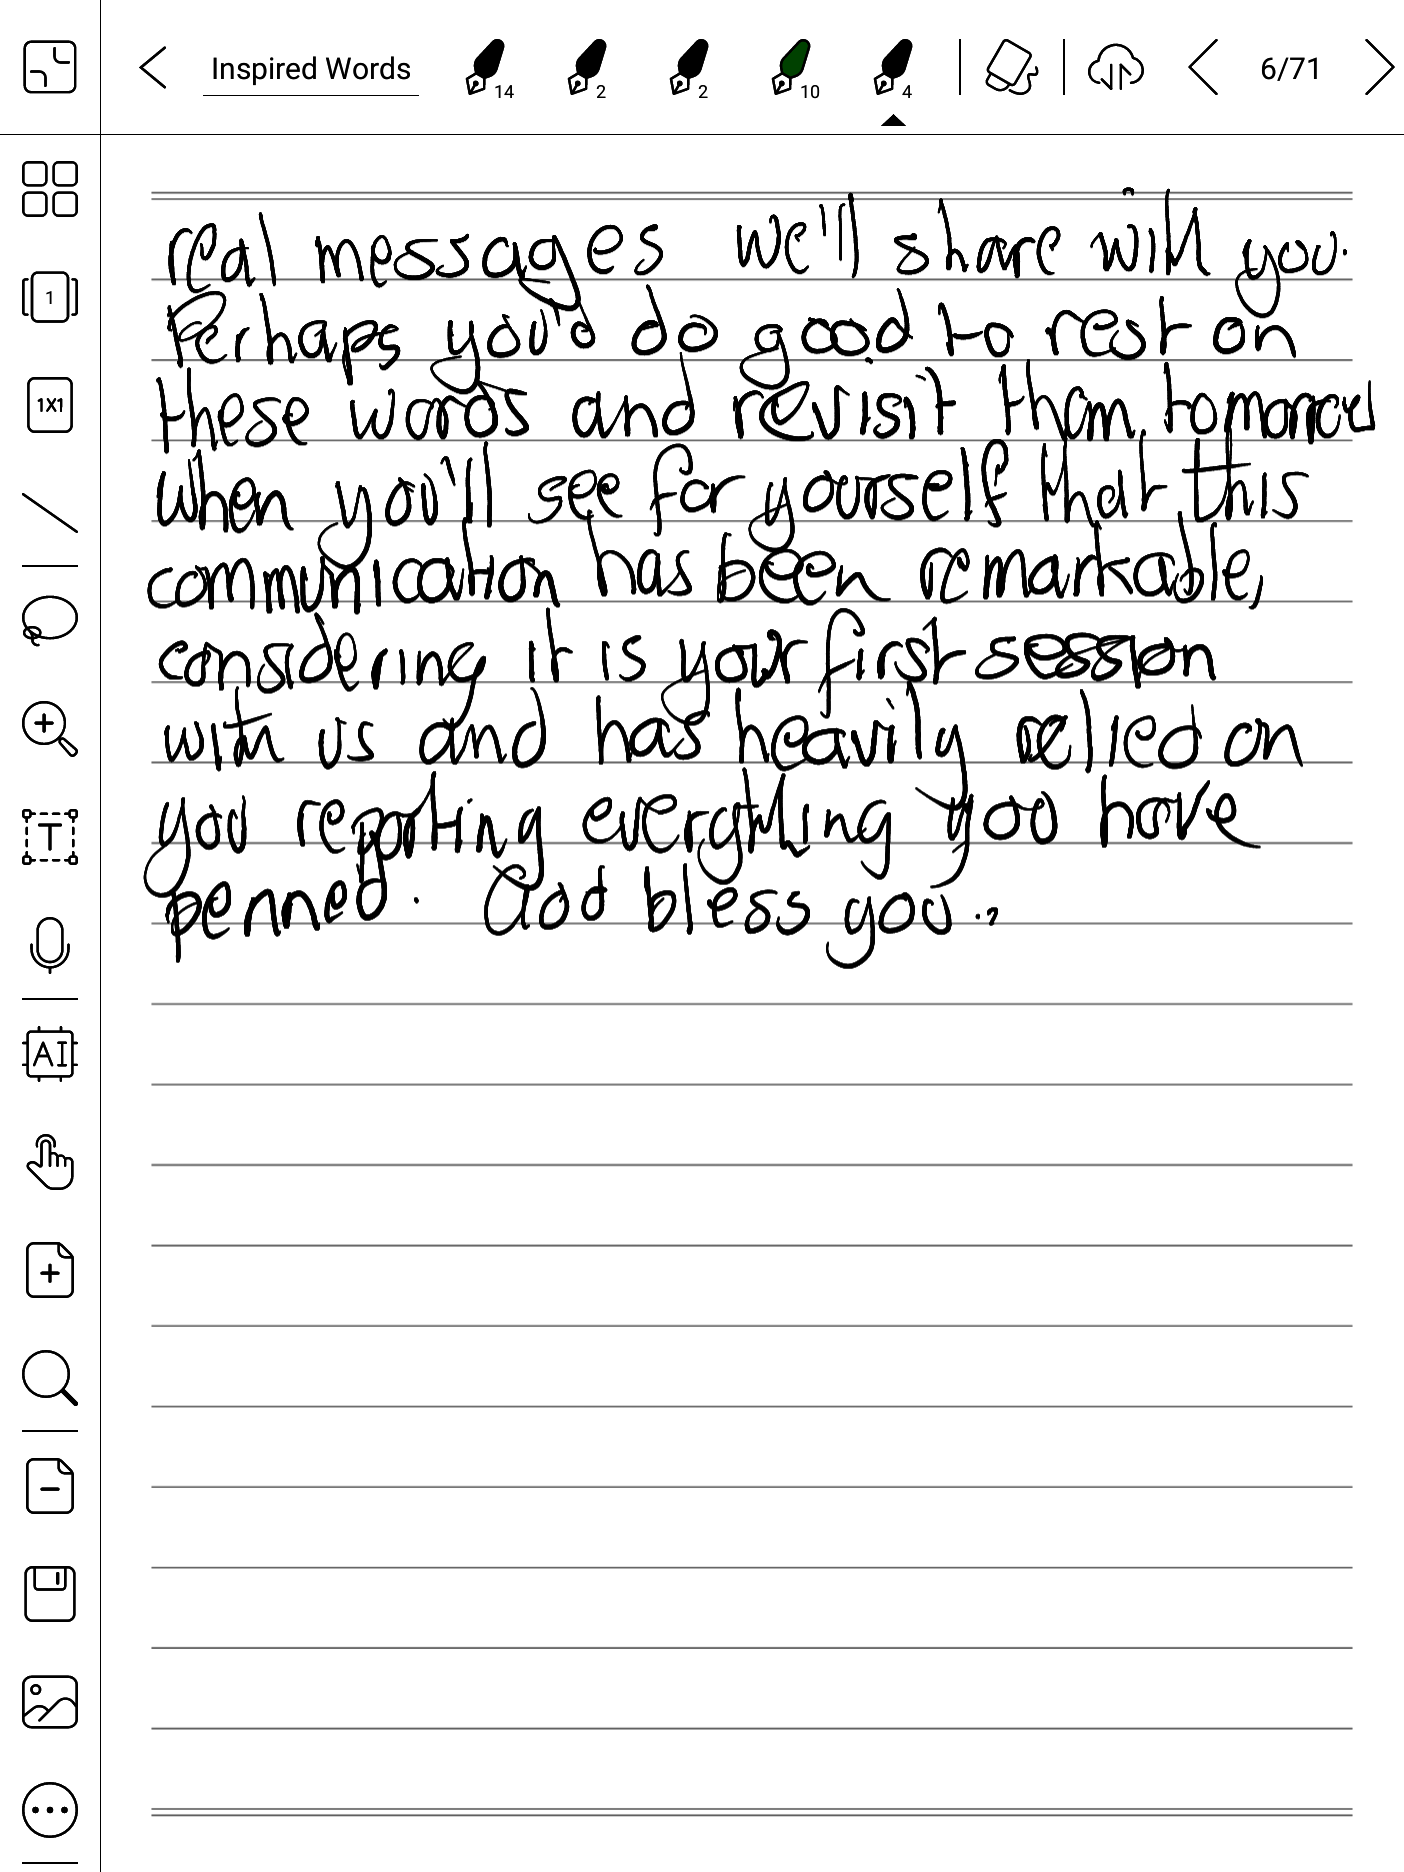 Inspired Words
14
2
2
10
4
6/71
1
1X1
T
AI
real messages we'll share with you.
Perhaps you'd do good to rest on
these words and revisit them tomorrow
when you'll see for yourself that this
communication has been remarkable,
considering it is your first session
with us and has heavily relied on
you reporting everything you have
penned. God bless you.